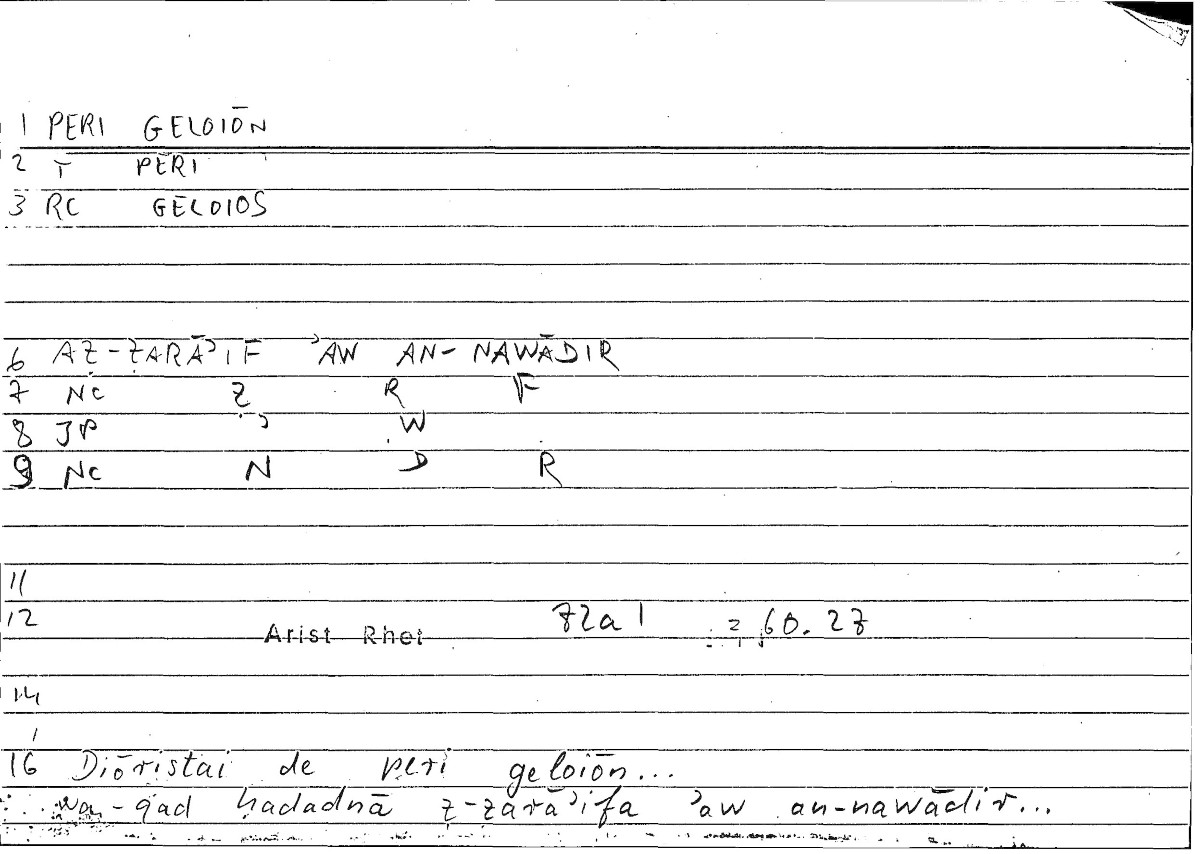 1 PERI GELOIŌN
2 T PERI
3 RC GELOIOS
6 AẒ-ẒARĀʾIF ʾAW AN-NAWĀDIR
7 NC Ẓ R F
8 JP ʾ W
9 NC N D R
11
12 Arist Rhet 72a1 60.27
14
16 Diōristai de peri geloiōn...
wa-qad ḥadadnā ẓ-ẓarāʾifa ʾaw an-nawādir...